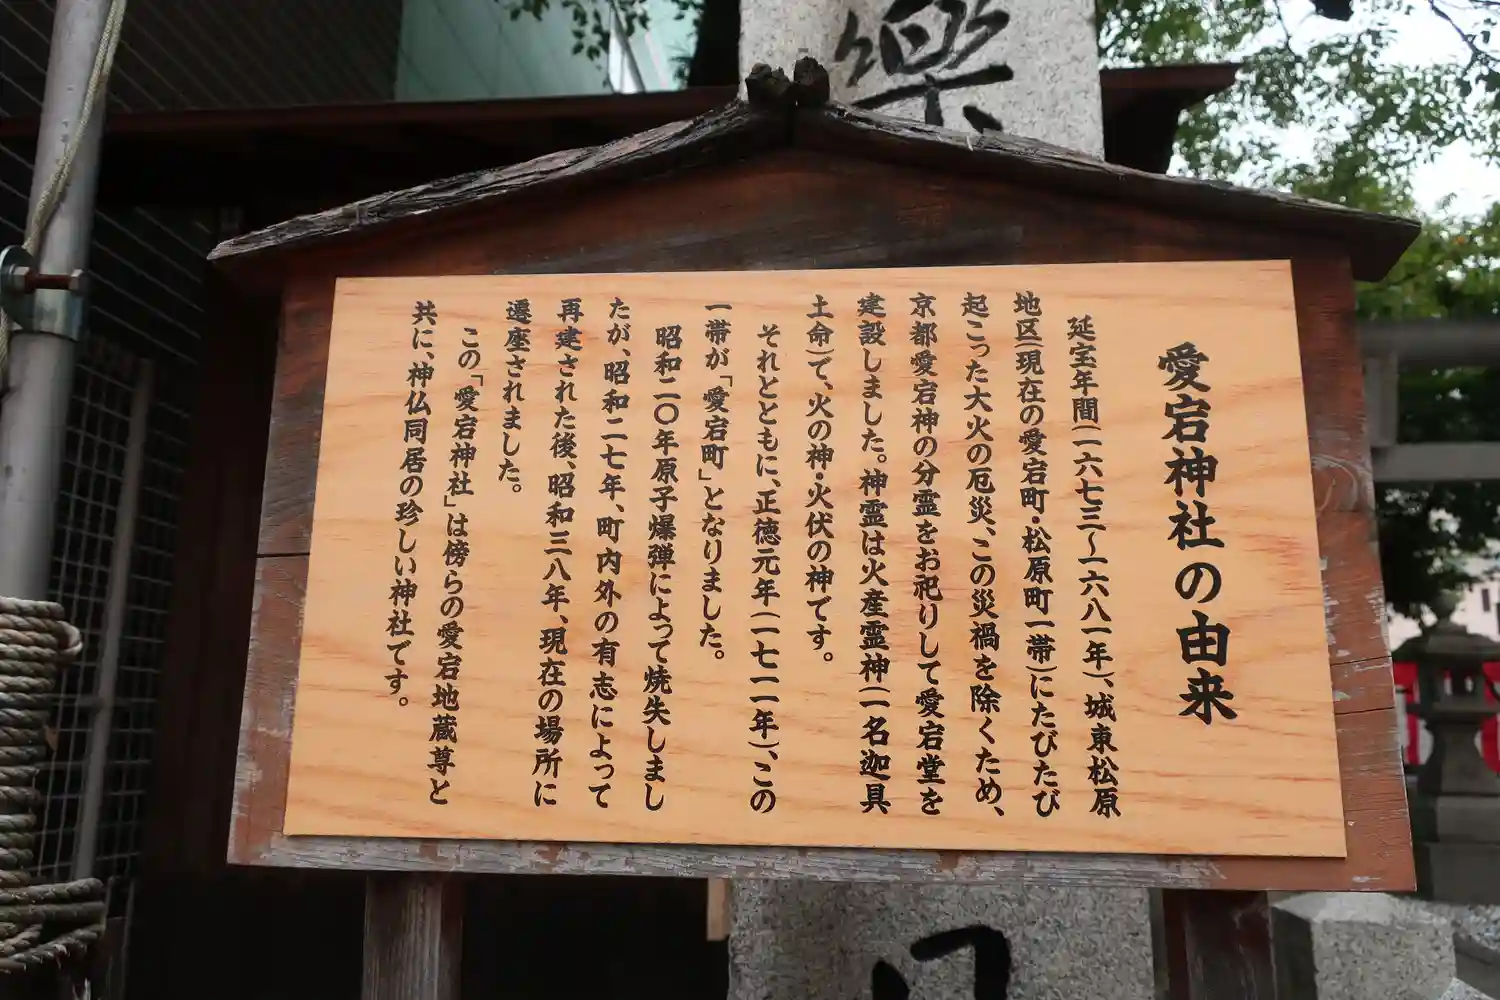 樂
愛宕神社の由来
延宝年間(一六七三～一六八一年)、城東松原
地区(現在の愛宕町・松原町一帯)にたびたび
起こった大火の厄災、この災禍を除くため、
京都愛宕神の分霊をお祀りして愛宕堂を
建設しました。神霊は火産霊神(一名迦具
土命)で、火の神・火伏の神です。
それとともに、正徳元年(一七一一年)、この
一帯が「愛宕町」となりました。
昭和二〇年原子爆弾によって焼失しまし
たが、昭和二七年、町内外の有志によって
再建された後、昭和三八年、現在の場所に
遷座されました。
この「愛宕神社」は傍らの愛宕地蔵尊と
共に、神仏同居の珍しい神社です。